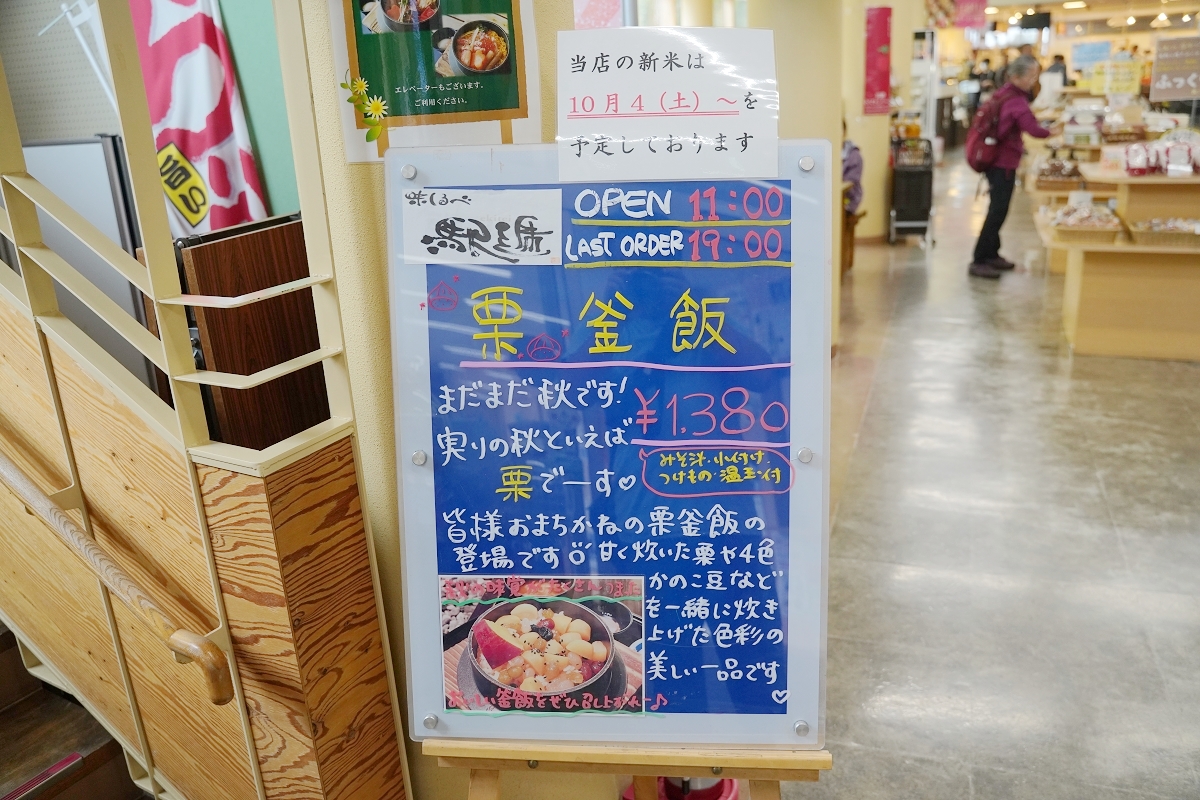 エレベーターもございます。
ご利用ください。
当店の新米は
10月4(土)～を
予定しております
味しるべ
駅馬
OPEN 11:00
LAST ORDER 19:00
栗釜飯
まだまだ秋です!
¥1,380
実りの秋といえば
栗でーす♡
みそ汁・小付け
つけもの・温玉付
皆様おまちかねの栗釜飯の
登場です 甘く炊いた栗や4色
かのこ豆など
を一緒に炊き
上げた色彩の
美しい一品です
♡
おいしい釜飯をぜひ召し上がれー♪